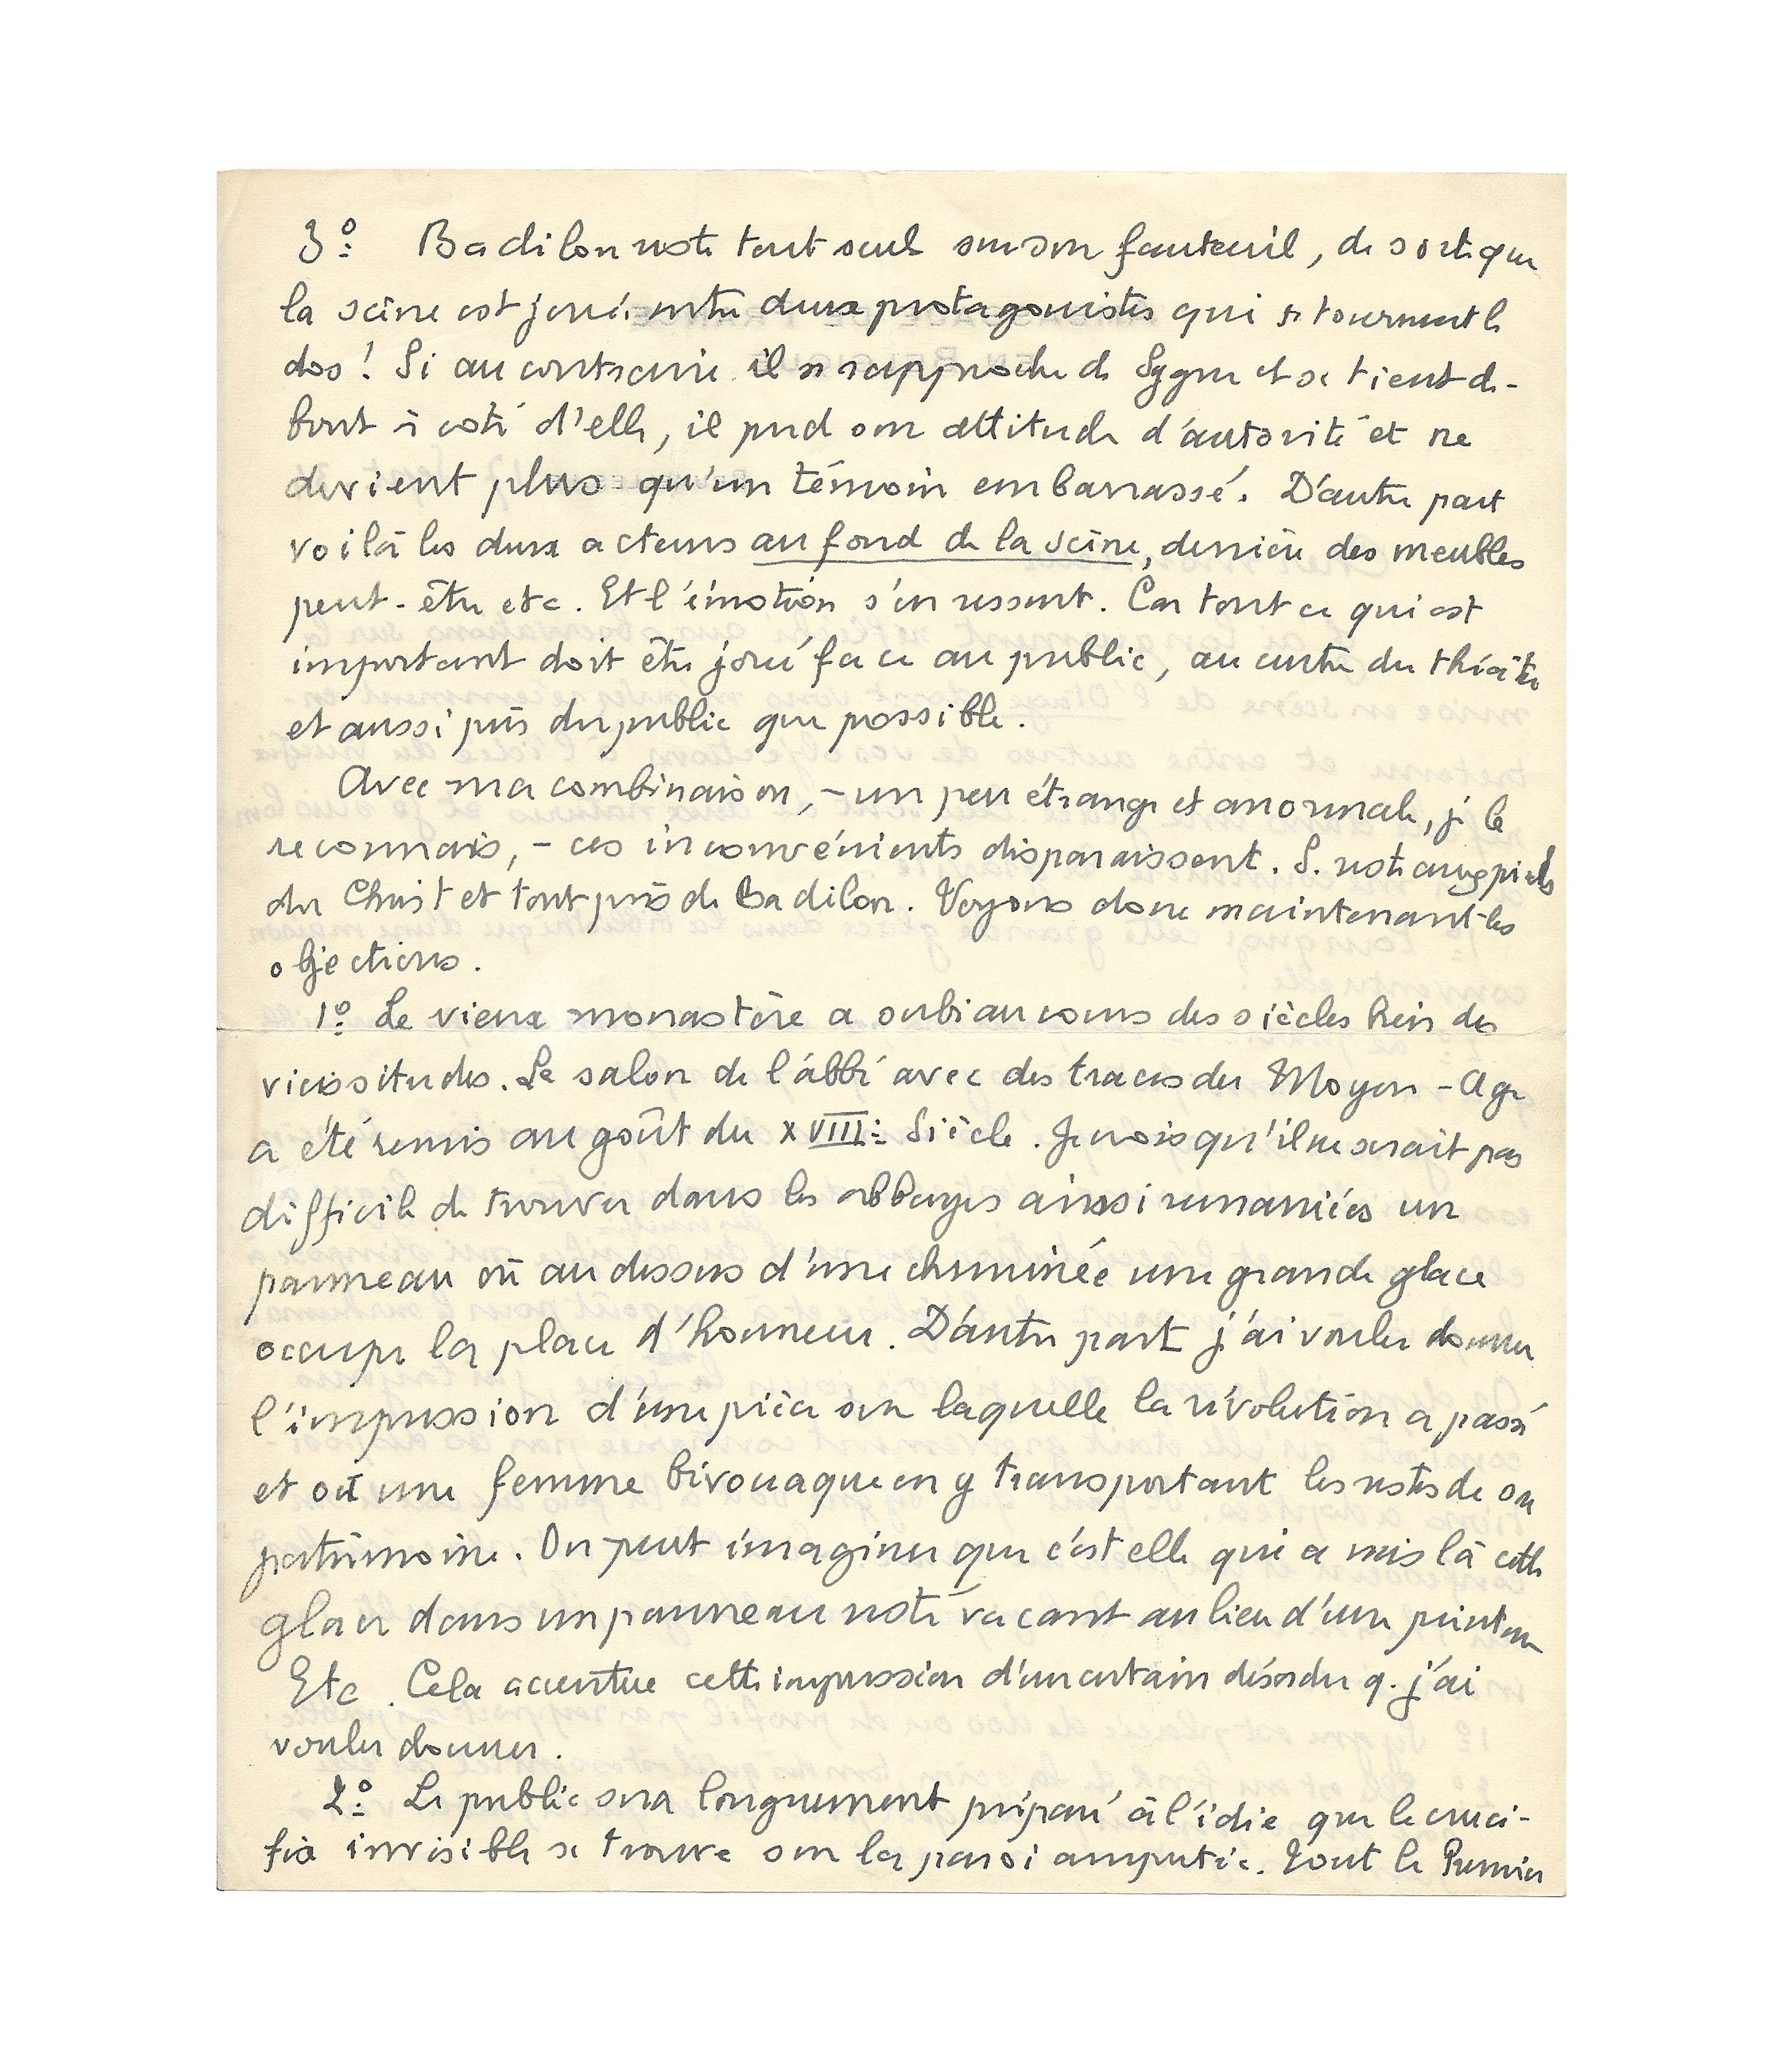 3º Badilon reste tout seul sur son fauteuil, de sorte que
la scène est jouée entre deux protagonistes qui se tournent le
dos ! Si au contraire il se rapproche de Sygne et se tient de-
bout à côté d'elle, il perd son attitude d'autorité et ne
devient plus qu'un témoin embarrassé. D'autre part
voilà les deux acteurs au fond de la scène, derrière des meubles
peut-être etc. Et l'émotion s'en ressent. Car tout ce qui est
important doit être joué face au public, au centre du théâtre
et aussi près du public que possible.
Avec ma combinaison, - un peu étrange et anormale, je le
reconnais, - ces inconvénients disparaissent. S. reste aux pieds
du Christ et tout près de Badilon. Voyons donc maintenant les
objections.
1º Le vieux monastère a subi au cours des siècles bien des
vicissitudes. Le salon de l'abbé avec des traces du Moyen-Age
a été remis au goût du XVIIIe Siècle. Je crois qu'il ne serait pas
difficile de trouver dans les abbayes ainsi remaniées un
panneau où au dessus d'une cheminée une grande glace
occupe la place d'honneur. D'autre part j'ai voulu donner
l'impression d'une pièce sur laquelle la révolution a passé
et où une femme bivouaque en y transportant les restes de son
patrimoine. On peut imaginer que c'est elle qui a mis là cette
glace dans un panneau resté vacant au lieu d'une peinture
Etc. Cela accentue cette impression d'un certain désordre q. j'ai
voulu donner.
2º Le public sera longuement préparé à l'idée que le cruci-
fix invisible se trouve sur la paroi amputée. Tout le Premier